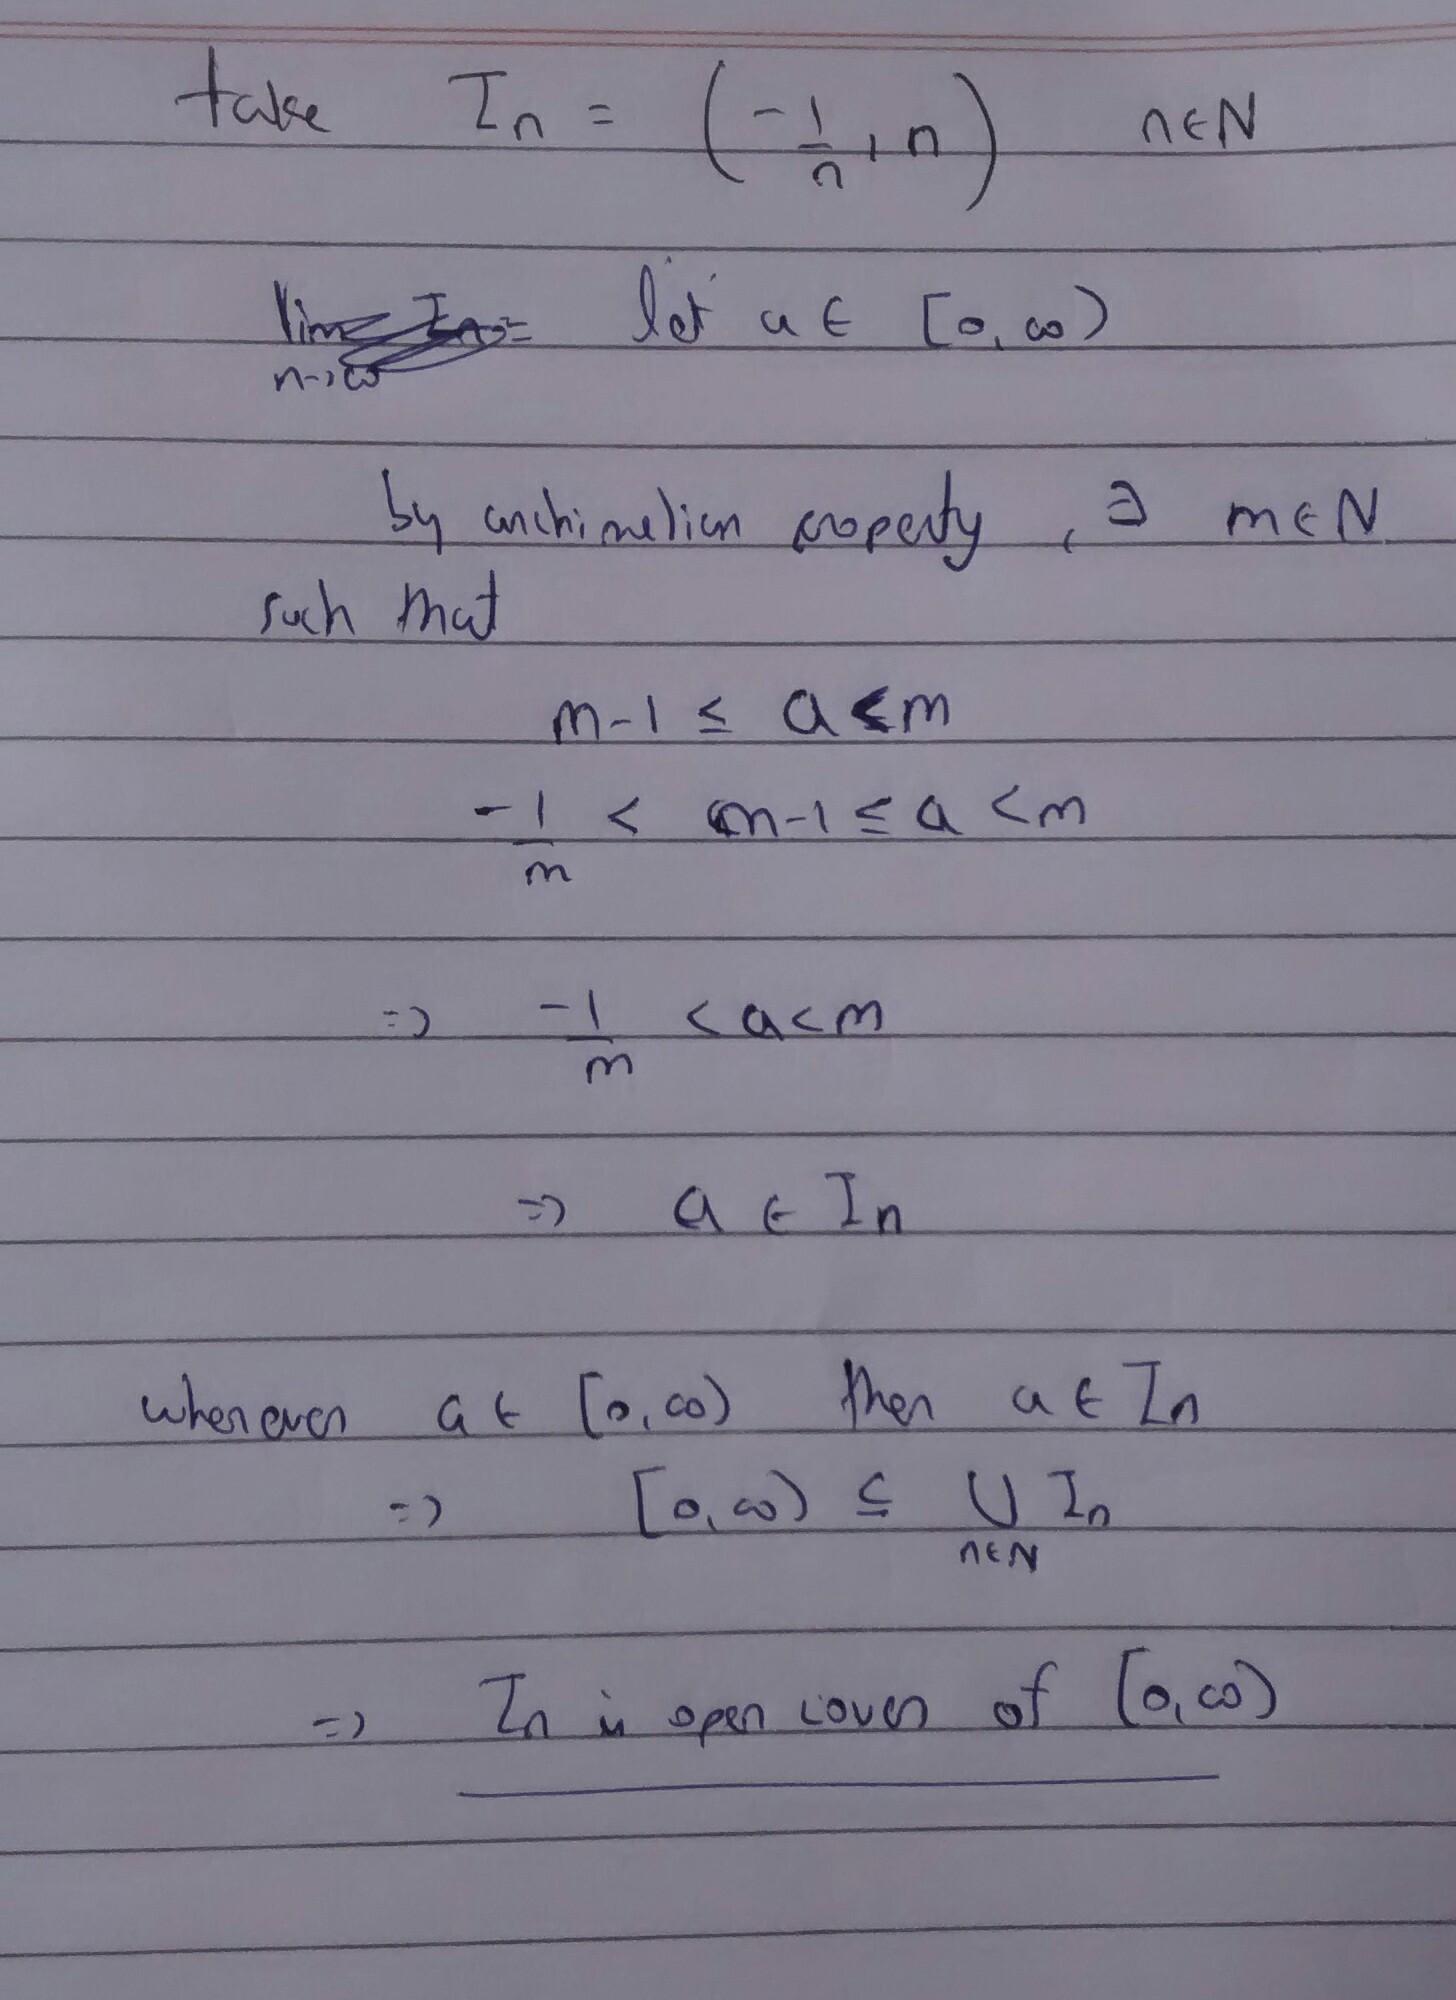 take In = (-1/n, n) n∈N
lim In = n→∞ let a ∈ [0, ∞)
by archimedian property, ∃ m∈N
such that
m-1 ≤ a < m
-1/m < m-1 ≤ a < m
=> -1/m < a < m
=> a ∈ In
whenever a ∈ [0, ∞) then a ∈ In
=> [0, ∞) ⊆ ∪ In
n∈N
=> In is open cover of [0, ∞)